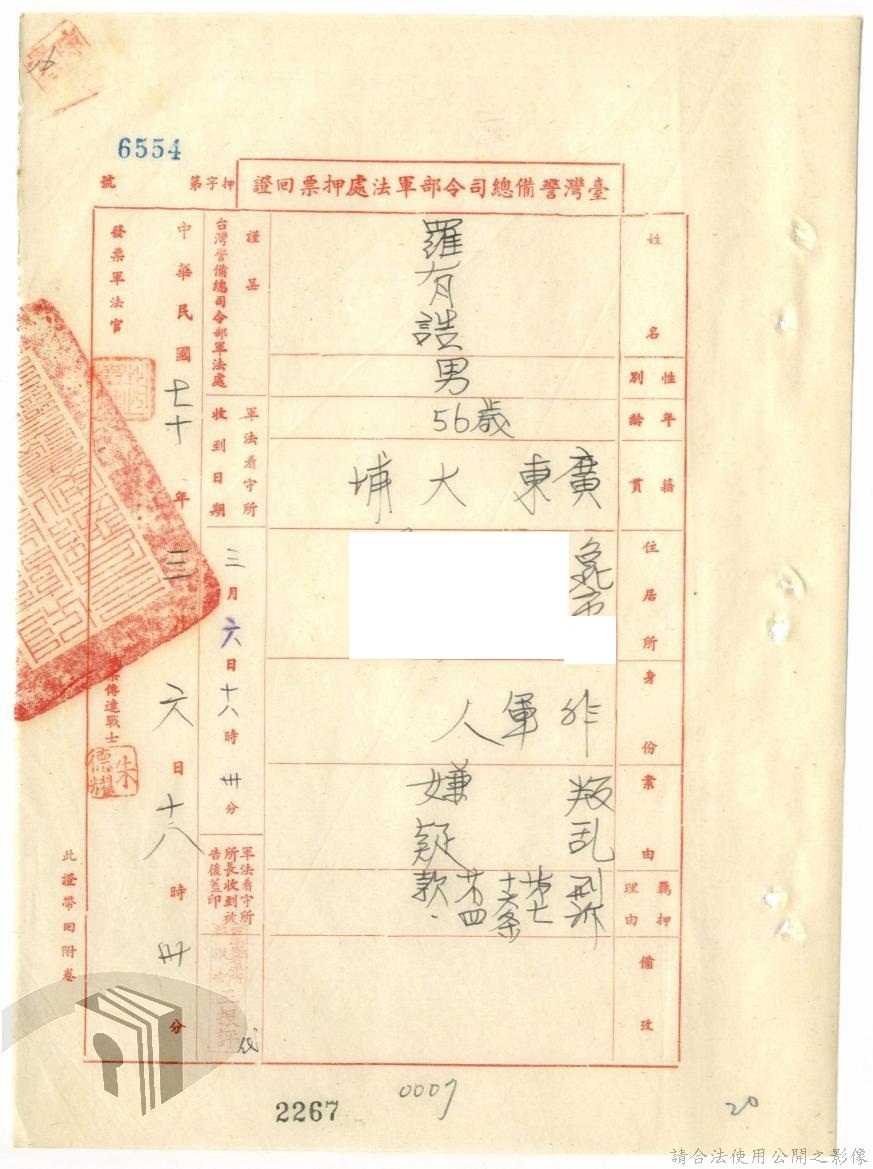 6554
臺灣警備總司令部軍法處押票回證
押字第
號
姓名
羅有誥
性別
男
年齡
56歲
籍貫
廣東大埔
住居所
身份
非軍人
案由
叛乱
嫌疑
羈押理由
刑訴
第七
十六条
第四
款
備攷
謹呈
台灣警備總司令部軍法處
軍法看守所
收到日期
三月六日十八時卅分
軍法看守所
所長收到被
告後蓋印
王振評
代
中華民國七十年三月六日十八時卅分
發票軍法官
傳達戰士
朱德耀
此證帶回附卷
2267
0007
20
請合法使用公開之影像